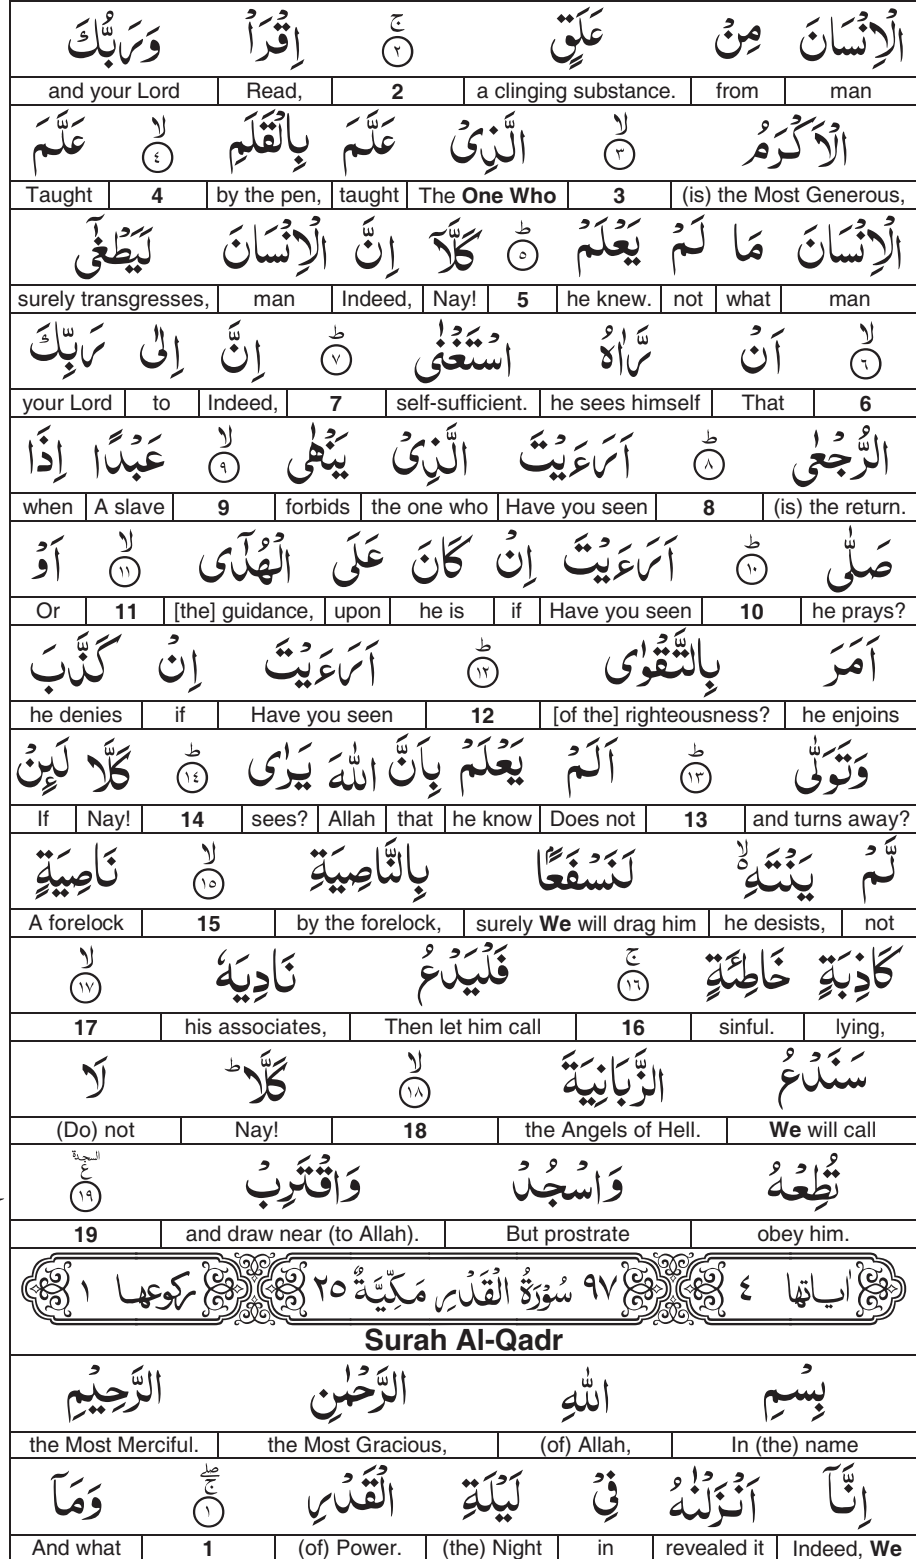 الْاِنْسَانَ مِنْ عَلَقٍ ۚ‏﴿٢﴾ اِقْرَاْ وَرَبُّكَ
man from a clinging substance. 2 Read, and your Lord
الْاَكْرَمُ ۙ‏﴿٣﴾ الَّذِىْ عَلَّمَ بِالْقَلَمِ ۙ‏﴿٤﴾ عَلَّمَ
(is) the Most Generous, 3 The One Who taught by the pen, 4 Taught
الْاِنْسَانَ مَا لَمْ يَعْلَمْ ؕ‏﴿٥﴾ كَلَّاۤ اِنَّ الْاِنْسَانَ لَيَطْغٰٓى
man what not he knew. 5 Nay! Indeed, man surely transgresses,
ۙ‏﴿٦﴾ اَنْ رَّاٰهُ اسْتَغْنٰى ؕ‏﴿٧﴾ اِنَّ اِلٰى رَبِّكَ
6 That he sees himself self-sufficient. 7 Indeed, to your Lord
الرُّجْعٰى ؕ‏﴿٨﴾ اَرَءَيْتَ الَّذِىْ يَنْهٰى ۙ‏﴿٩﴾ عَبْدًا اِذَا
(is) the return. 8 Have you seen the one who forbids 9 A slave when
صَلّٰى ؕ‏﴿١٠﴾ اَرَءَيْتَ اِنْ كَانَ عَلَى الْهُدٰٓى ۙ‏﴿١١﴾ اَوْ
he prays? 10 Have you seen if he is upon [the] guidance, 11 Or
اَمَرَ بِالتَّقْوٰى ؕ‏﴿١٢﴾ اَرَءَيْتَ اِنْ كَذَّبَ
he enjoins [of the] righteousness? 12 Have you seen if he denies
وَتَوَلّٰى ؕ‏﴿١٣﴾ اَلَمْ يَعْلَمْ بِاَنَّ اللّٰهَ يَرٰى ؕ‏﴿١٤﴾ كَلَّا لَئِنْ
and turns away? 13 Does not he know that Allah sees? 14 Nay! If
لَّمْ يَنْتَهِ ۙ۬ لَنَسْفَعًۢا بِالنَّاصِيَةِ ۙ‏﴿١٥﴾ نَاصِيَةٍ
not he desists, surely We will drag him by the forelock, 15 A forelock
كَاذِبَةٍ خَاطِئَةٍ ۚ‏﴿١٦﴾ فَلْيَدْعُ نَادِيَهٗ ۙ‏﴿١٧﴾
lying, sinful. 16 Then let him call his associates, 17
سَنَدْعُ الزَّبَانِيَةَ ۙ‏﴿١٨﴾ كَلَّا ؕ لَا
We will call the Angels of Hell. 18 Nay! (Do) not
تُطِعْهُ وَاسْجُدْ وَاقْتَرِبْ السجدة ع ﴿١٩﴾
obey him. But prostrate and draw near (to Allah). 19
اٰياتها ٤ ٩٧ سُوْرَةُ الْقَدْرِ مَكِّيَّةٌ ٢٥ ركوعها ١
Surah Al-Qadr
بِسْمِ اللّٰهِ الرَّحْمٰنِ الرَّحِيْمِ
In (the) name (of) Allah, the Most Gracious, the Most Merciful.
اِنَّاۤ اَنْزَلْنٰهُ فِىْ لَيْلَةِ الْقَدْرِ ۖۚ‏﴿١﴾ وَمَاۤ
Indeed, We revealed it in (the) Night (of) Power. 1 And what